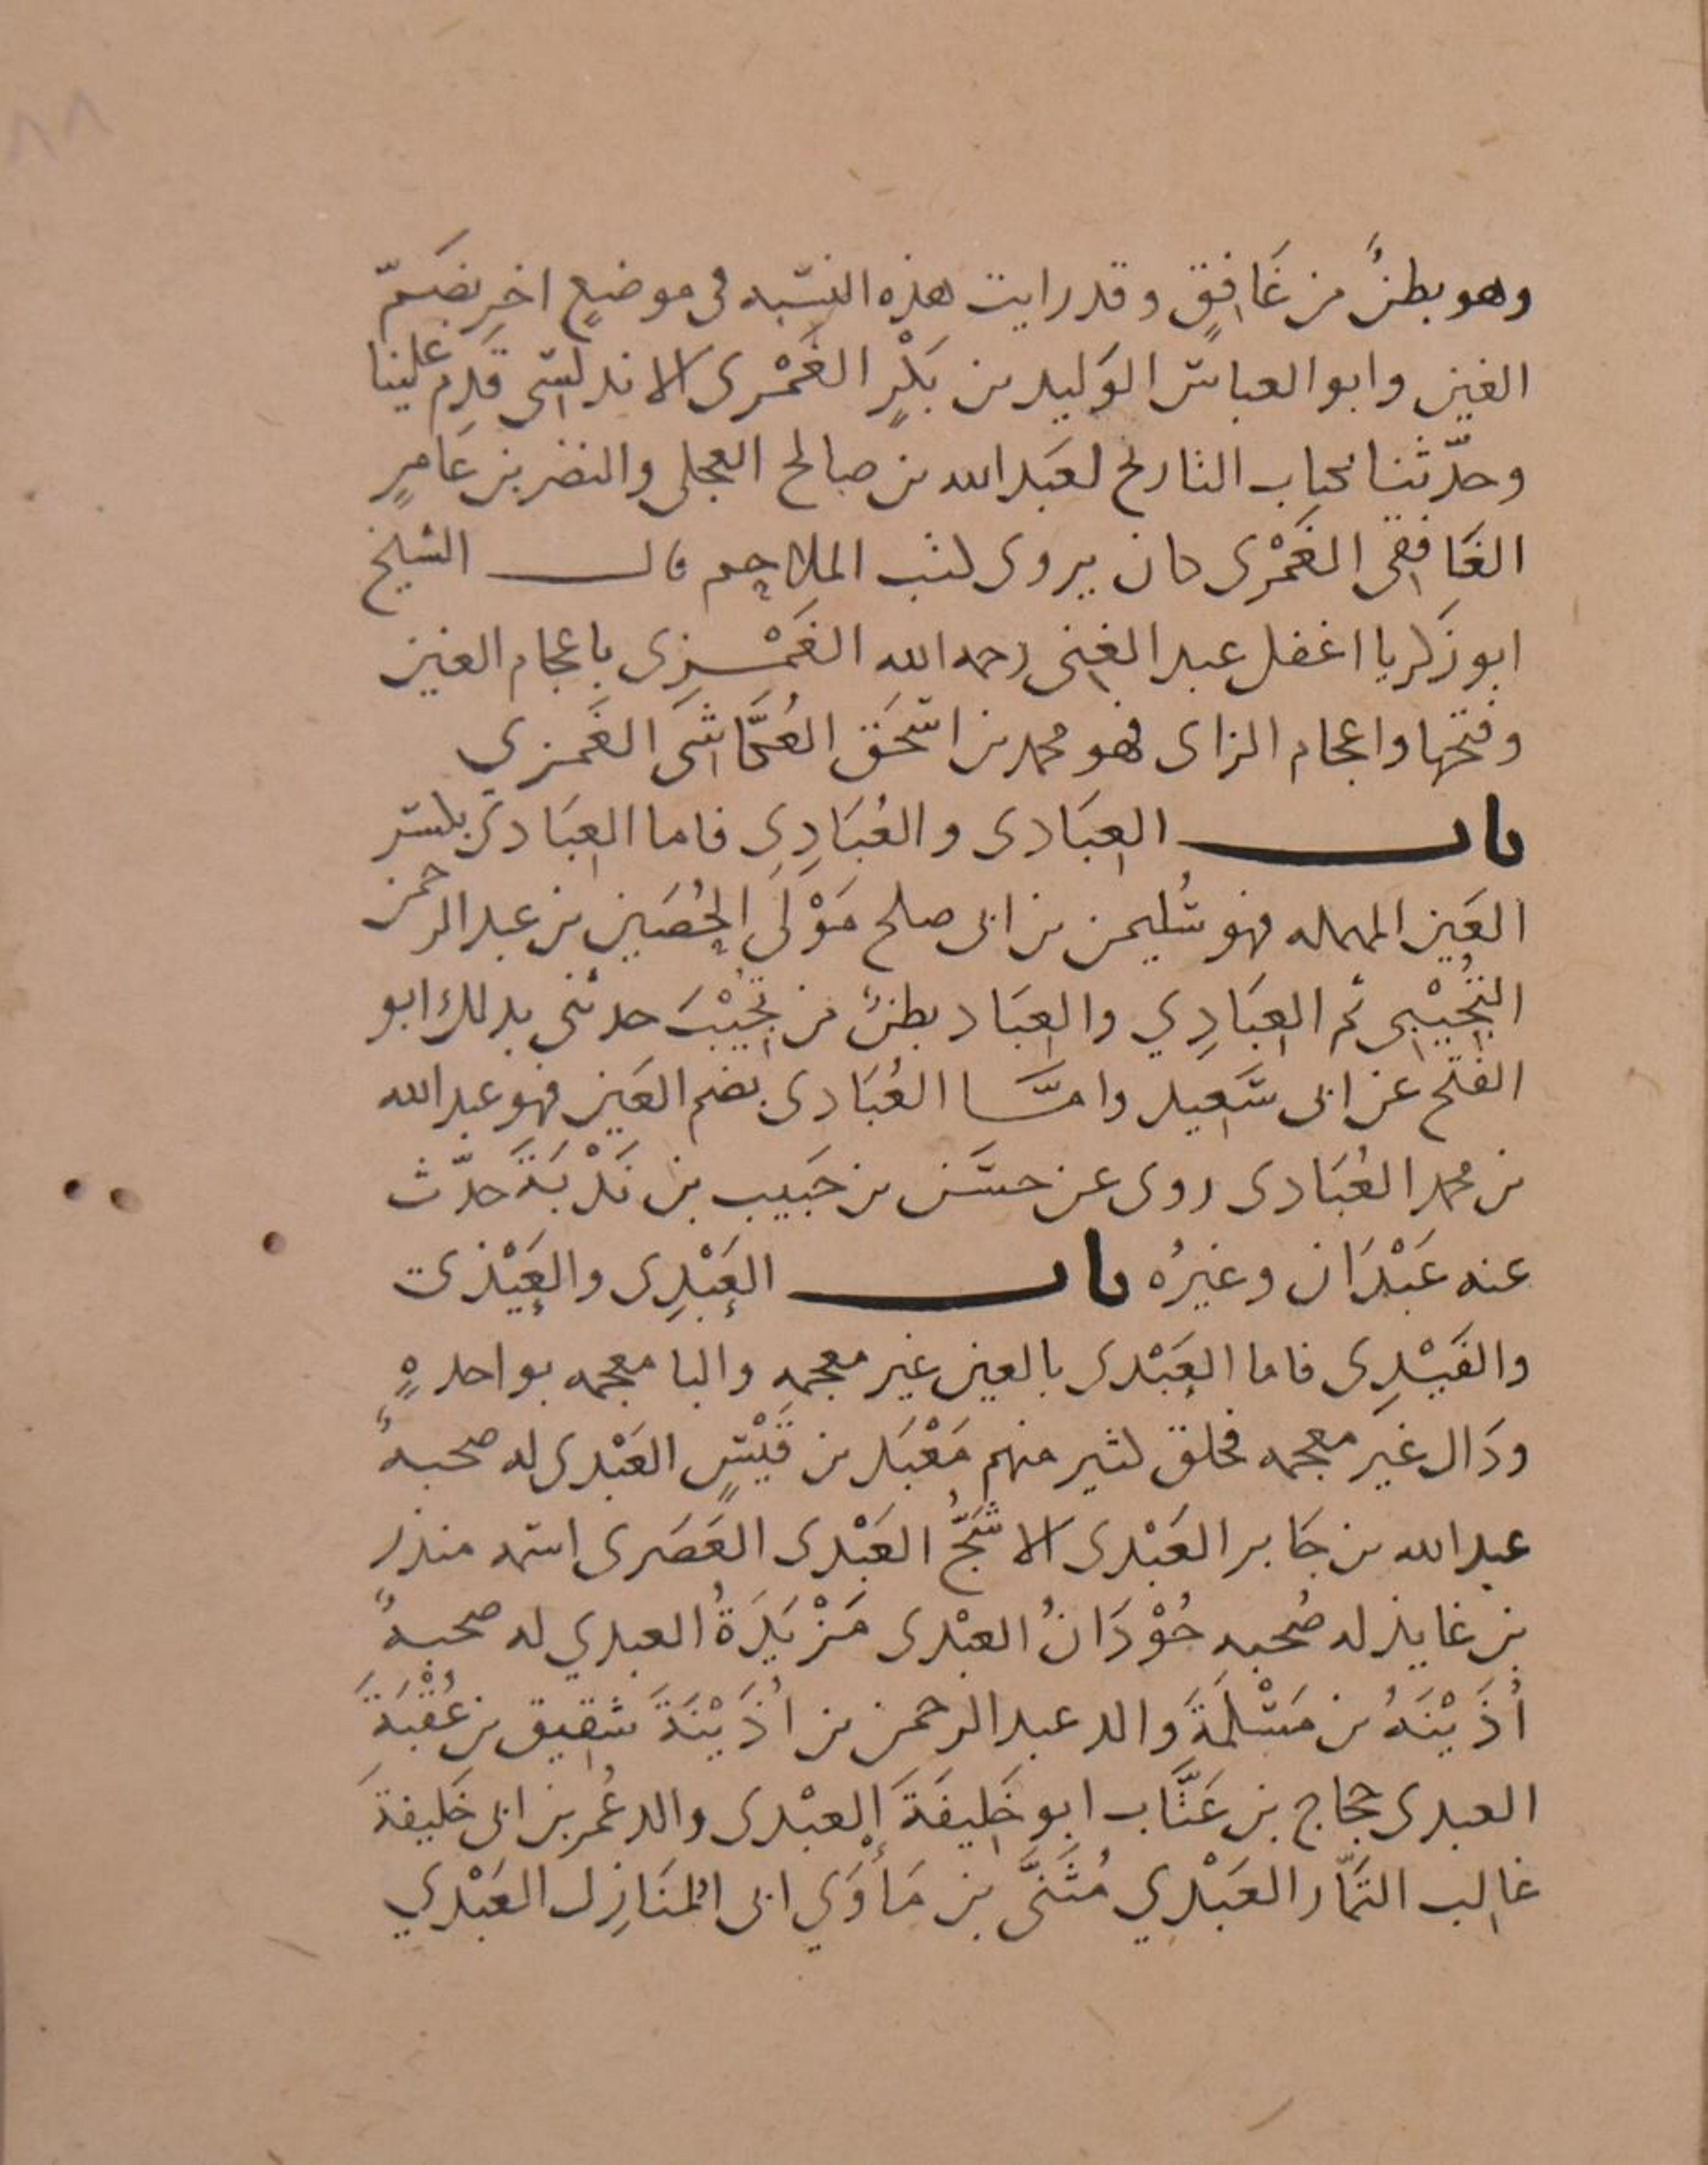 ٨٨
وهو بطنٌ من غَافِقٍ وقد رايت هذه النسبه فى موضعٍ اخرِ بضَمّ
الغين وابو العباس الوَليد بن بَكْرٍ الغَمْرى الاندلسى قَدِمَ علينا
وحدّثنا بكتاب التاريخ لعَبد الله بن صالح العجلى والنضر بن عَامرٍ
الغَافِقى الغَمْرى كان يروى كتب الملاحِم قال الشيخ
ابو زَكريا اغفل عبد الغنى رحمه الله الغَمْزى باعجام الغين
وفتحها واعجام الزاى فهو محمد بن اسْحَق العُكَّاشى الغَمزي
باب العِبَادى والعُبَادِى فاما العِبَادى بكسر
العَين المهمله فهو سُليمن بن ابى صلح مَوْلَى الحُصَين بن عبد الرحمن
التُجِيْبِى ثم العِبَادِي والعِبَاد بطنٌ من تُجِيْبَ حدثنى بذلك ابو
الفتح عن ابى سَعِيد وامَّا العُبَادى بضم العَين فهو عبد الله
بن محمد العُبَادى روى عن حسَن بن حَبيب بن نَدْبَةَ حدّث
عنه عَبْدَان وغيرُه باب العَبْدِى والعَيْذى
والفَيْدِى فاما العَبْدى بالعين غير معجمه والبا معجمه بواحدهٍ
ودَال غير معجمه فخلق كثير منهم مَعْبَد بن قَيْسٍ العَبْدى له صحبهٌ
عبد الله بن جَابر العَبْدى الاشَجُّ العَبْدى العَصَرى اسمه منذر
بن عايذ له صُحبه جُوْدَانُ العبْدى مَزْيَدَةُ العبدي له صحبهٌ
أُذَيْنَهُ بن مَسْلَمَةَ والد عبد الرحمن بن أُذَيْنَةَ شقِيق بن عُقْبَةَ
العبدى حجاج بن عَتَّاب ابو خَلِيفَةَ العبْدى والد عُمر بن ابى خَليفةَ
غالِب التَمّار العَبْدِي مُثَنَّى بن مَأْوَي ابى المُنَازِل العَبْدي